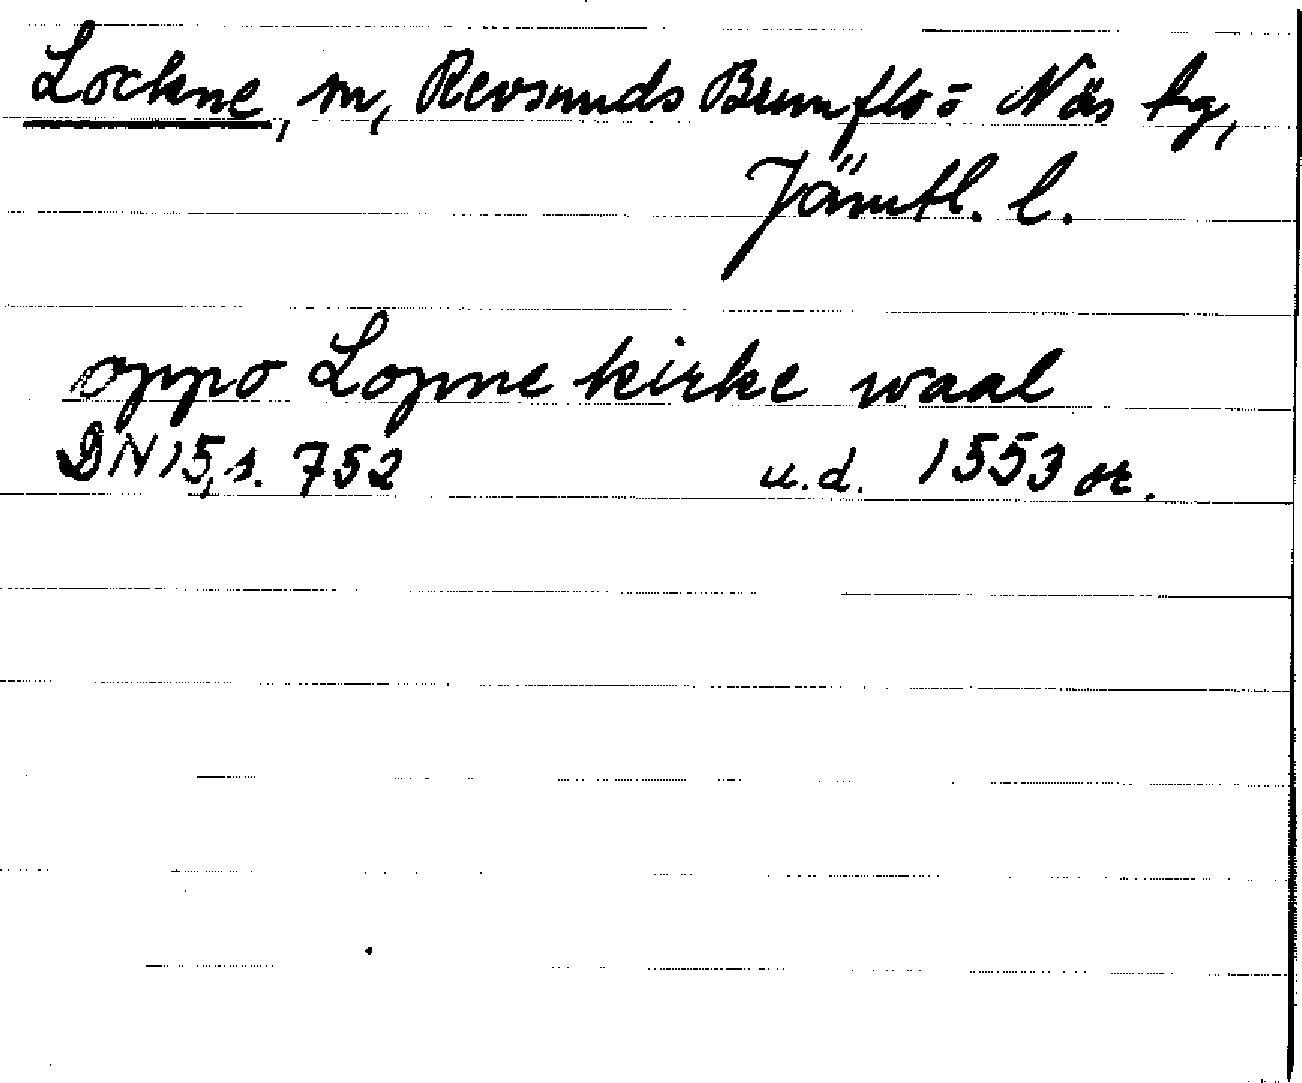 Lockne, sn, Revsunds Brunflo o Näs tg,
Jämtl. l.
oppo Lopne kirke waal
DN 15, s. 752 u.d. 1553 or.